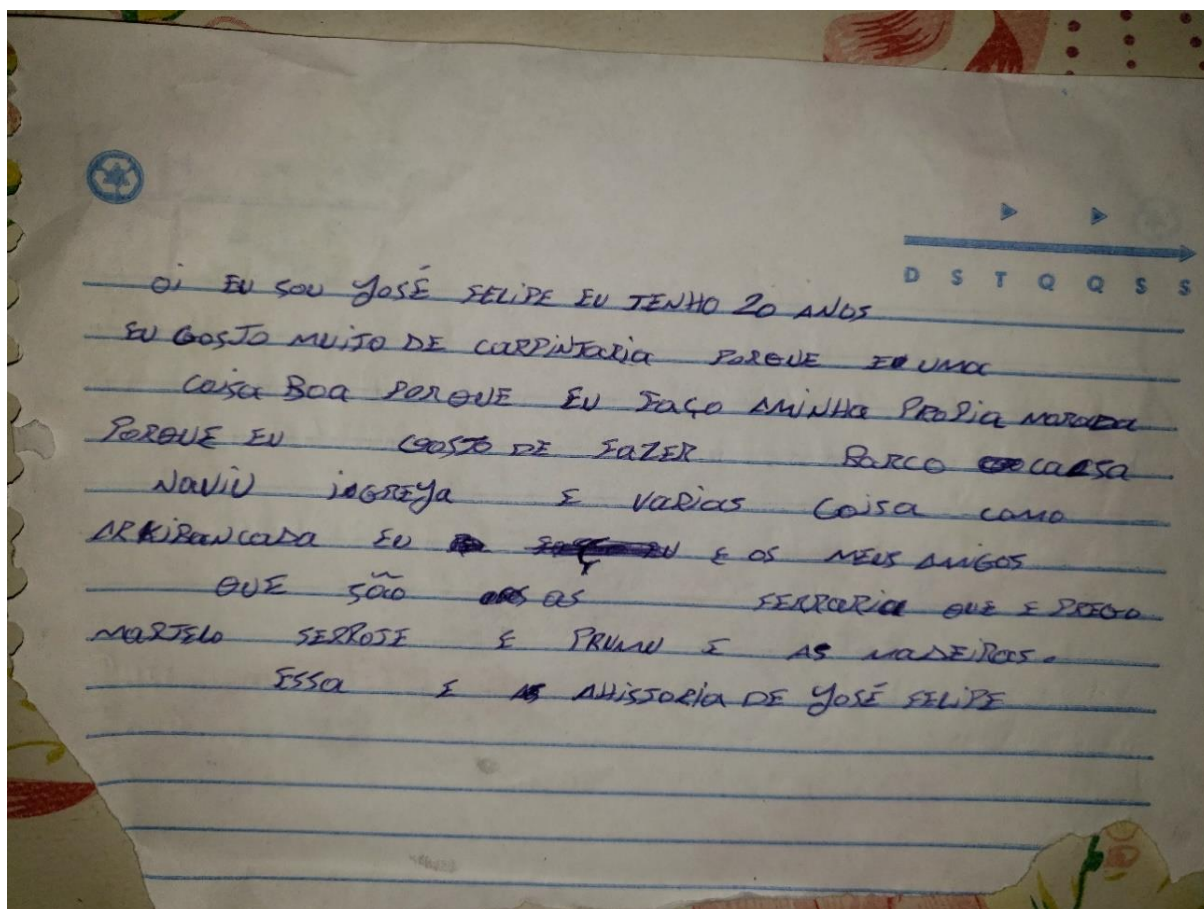 D S T Q Q S S
Oi EU SOU YOSÉ FELIPE EU TENHO 20 ANOS
EU GOSTO MUITO DE CARPINTARIA PORQUE E UMA
COISA BOA PORQUE EU FAÇO AMINHA PROPIA MORADA
PORQUE EU GOSTO DE FAZER BARCO CAASA
NAVIU IGREYA E VARIAS COISA COMO
ARKIBANCADA EU E OS MEUS AMIGOS
QUE SÃO AS FERRARIA QUE E PREGO
MARTELO SERROTE E PRUMU E AS MADEIRAS.
ESSA E AHISTORIA DE YOSÉ FELIPE